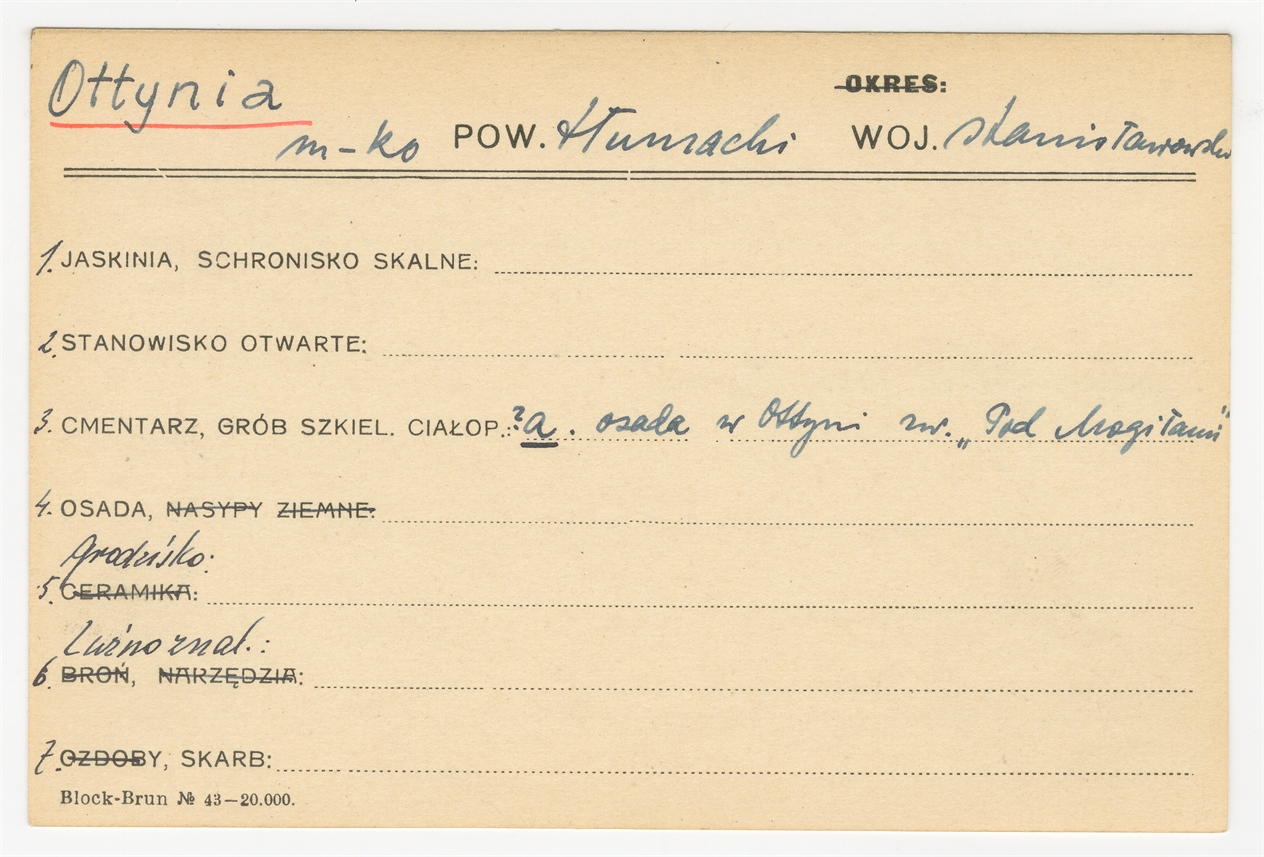 Ottynia
OKRES:
m-ko POW. tłumacki WOJ. stanisławowskie
1. JASKINIA, SCHRONISKO SKALNE:
2. STANOWISKO OTWARTE:
3. CMENTARZ, GRÓB SZKIEL. CIAŁOP.: ?a. osada w Ottyni zw. „Pod Mogiłami"
4. OSADA, NASYPY ZIEMNE:
Grodzisko:
5. CERAMIKA:
Luźno znal.:
6. BROŃ, NARZĘDZIA:
7. OZDOBY, SKARB:
Block-Brun № 43—20.000.